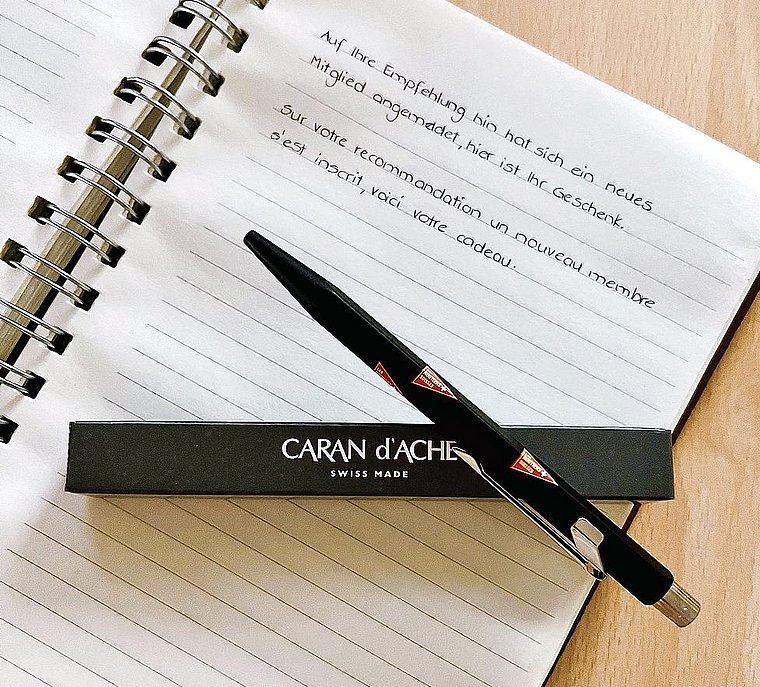 Auf Ihre Empfehlung hin hat sich ein neues
Mitglied angemeldet, hier ist Ihr Geschenk.
Sur votre recommandation un nouveau membre
s'est inscrit, voici votre cadeau.
CARAN d'ACHE
SWISS MADE